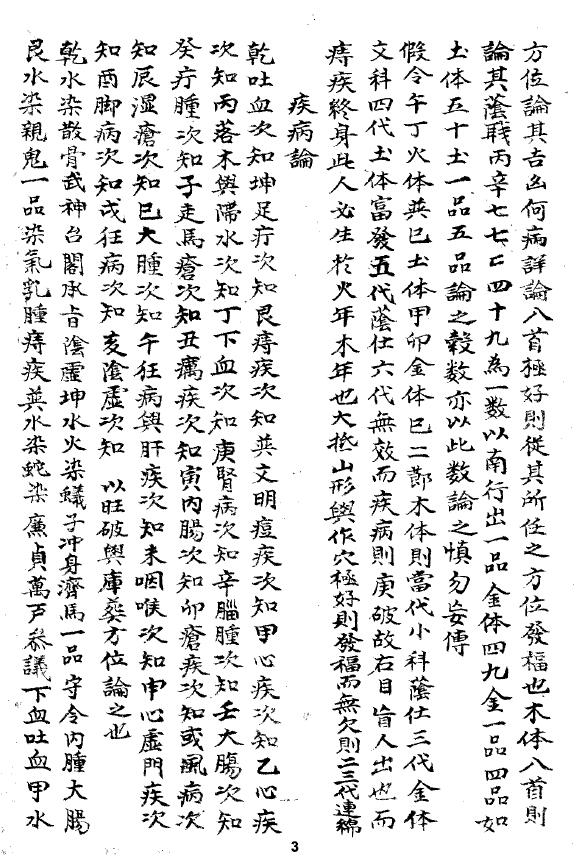 方位論其吉凶何病詳論八首極好則從其所任之方位發福也木体八首則
論其蔭職丙辛七七七四十九為一数以南行出一品金体四九金一品四品如
土体五十土一品五品論之穀数亦以此数論之慎勿妄傳
假令午丁火体巽巳土体甲卯金体巳二節木体則當代小科蔭仕三代金体
文科四代土体富發五代蔭仕六代無效而疾病則庚破故右目盲人出也而
痔疾終身此人必生於火年木年也大抵山形與作穴極好則發福而無欠則二三代連綿
疾病論
乾吐血次知坤足疔次知艮痔疾次知巽文明痘疾次知甲心疾次知乙心疾
次知丙落木與滯水次知丁下血次知庚腎病次知辛腦腫次知壬大腸次知
癸疔腫次知子走馬瘡次知丑癘疾次知寅内腸次知卯瘡疾次知或風病次
知辰湿瘡次知巳大腫次知午狂病與肝疾次知未咽喉次知申心虛門疾次
知酉脚病次知戌狂病次知亥陰虛次知 以旺破與庫葬方位論之也
乾水染散骨武神台閣承旨陰虛坤水火染蟻子冲身濟馬一品守令内腫大腸
艮水染親鬼一品染氣乳腫痔疾巽水染蛇染廉貞萬戸參議下血吐血甲水
3